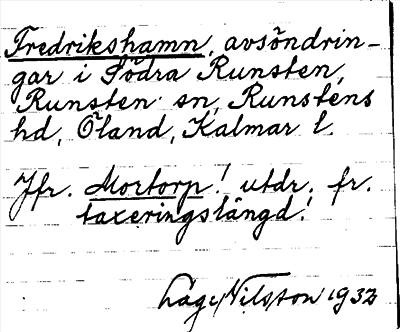 Fredrikshamn, avsöndrin-
gar i Södra Runsten,
Runsten sn, Runstens
hd, Öland, Kalmar l.
Jfr. Mortorp! utdr. fr.
taxeringslängd!
Låge Nilsson 1932